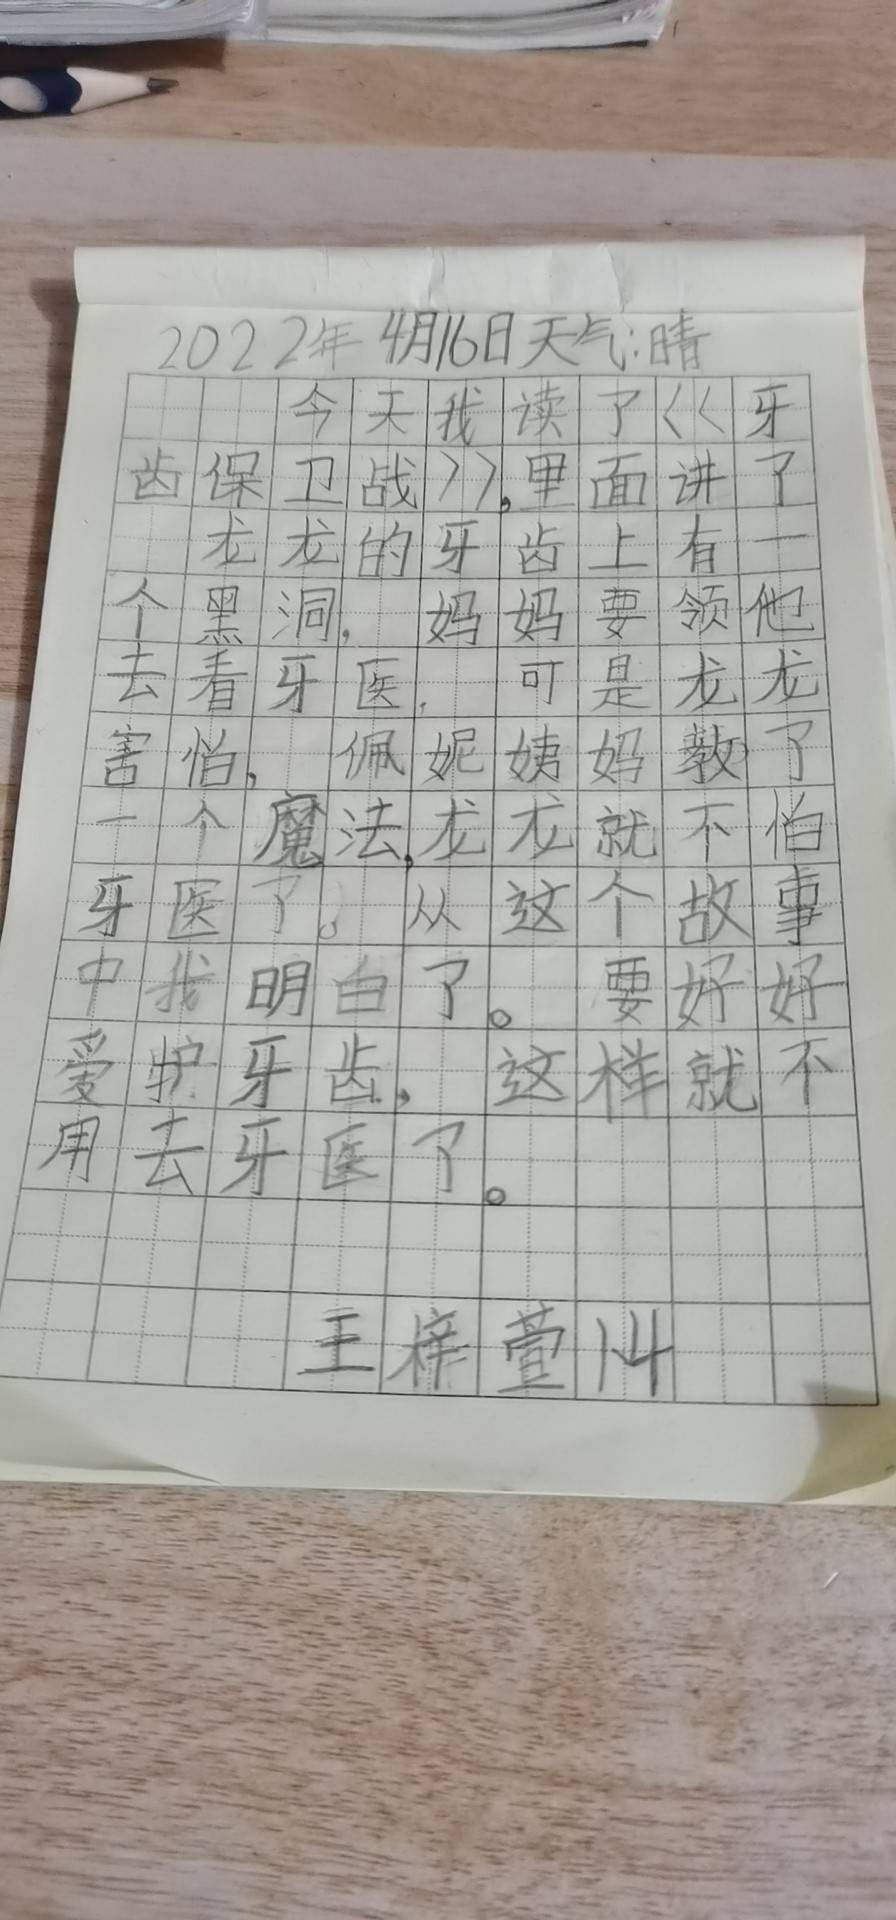 2022年4月16日天气:晴
今天我读了《牙
齿保卫战》,里面讲了
龙龙的牙齿上有一
个黑洞,妈妈要领他
去看牙医,可是龙龙
害怕,佩妮姨妈教了
一个魔法,龙龙就不怕
牙医了。从这个故事
中我明白了。要好好
爱护牙齿,这样就不
用去牙医了。
王梓萱14